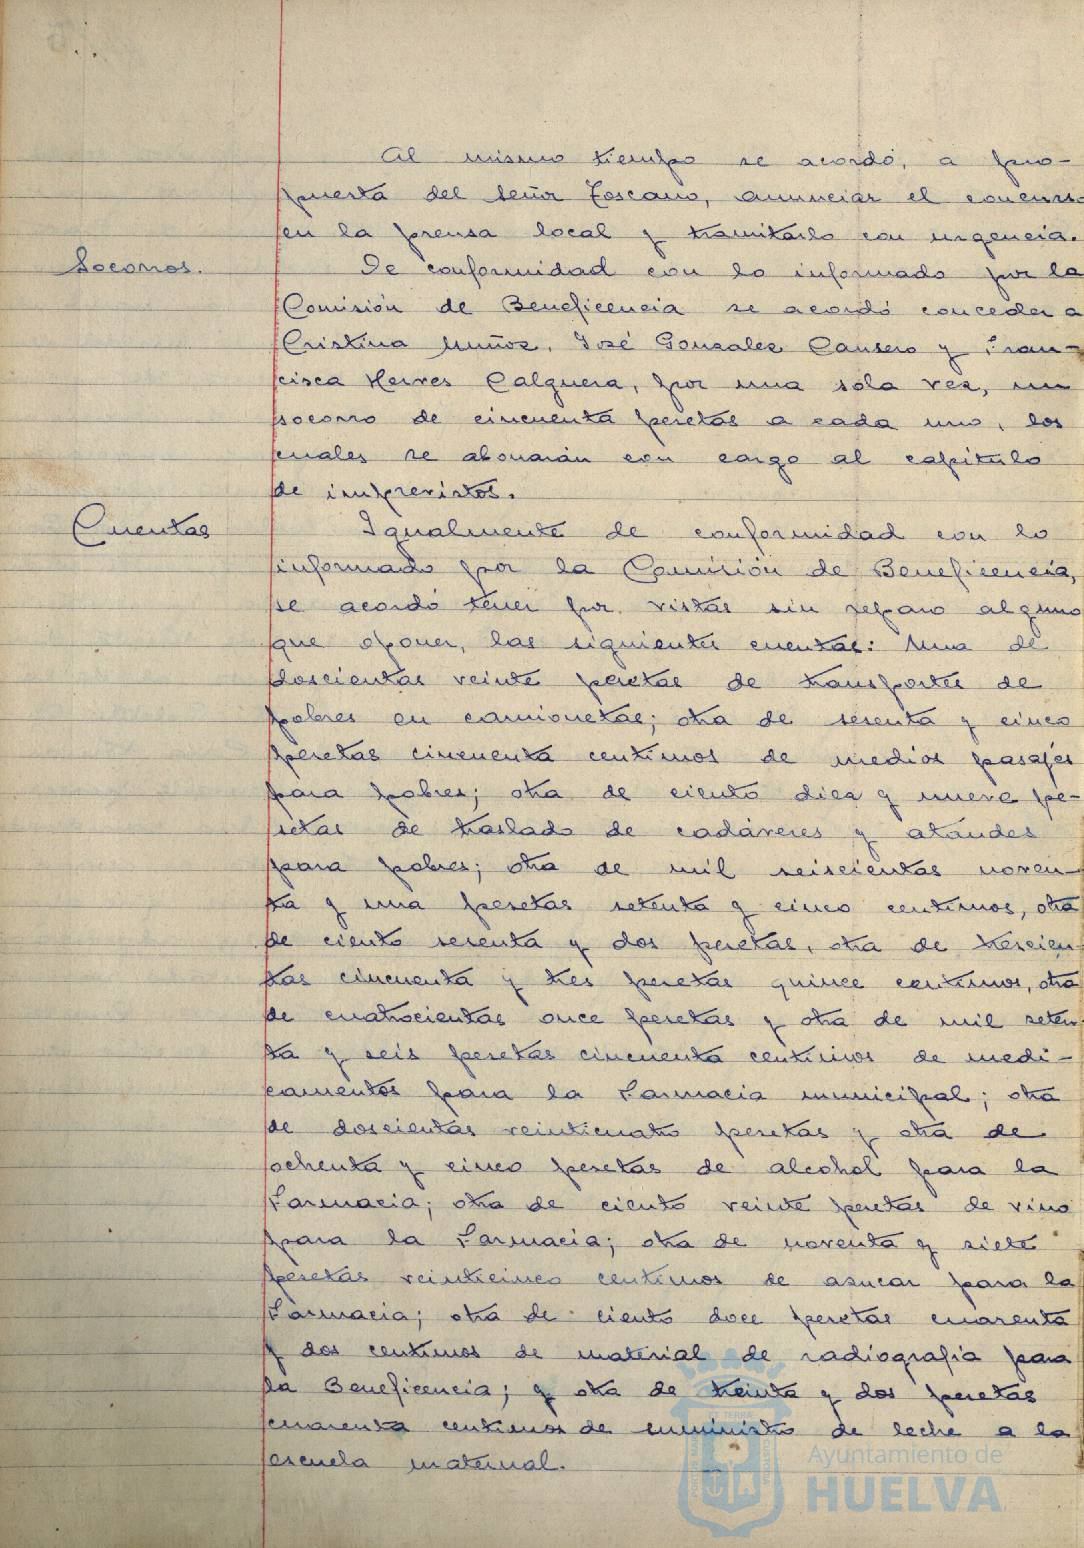 Al mismo tiempo se acordó, a pro-
puesta del Señor Toscano, anunciar el concurso
en la prensa local y tramitarlo con urgencia.
Socorros.
De conformidad con lo informado por la
Comisión de Beneficencia se acordó conceder a
Cristina Muñoz, José Gonzalez Cansero y Fran-
cisca Herves Calguera, por una sola vez, un
socorro de cincuenta pesetas a cada uno, los
cuales se abonarán con cargo al capítulo
de imprevistos.
Cuentas
Igualmente de conformidad con lo
informado por la Comisión de Beneficencia,
se acordó tener por vistas sin reparo alguno
que oponer, las siguientes cuentas: Una de
doscientas veinte pesetas de transportes de
pobres en camionetas; otra de sesenta y cinco
pesetas cincuenta centimos de medios pasajes
para pobres; otra de ciento diez y nueve pe-
setas de traslado de cadáveres y ataudes
para pobres; otra de mil seiscientas noven-
ta y una pesetas setenta y cinco centimos, otra
de ciento sesenta y dos pesetas, otra de trescien-
tas cincuenta y tres pesetas quince centimos, otra
de cuatrocientas once pesetas y otra de mil seten-
ta y seis pesetas cincuenta centimos de medi-
camentos para la Farmacia municipal; otra
de doscientas veinticuatro pesetas y otra de
ochenta y cinco pesetas de alcohol para la
Farmacia; otra de ciento veinte pesetas de vino
para la Farmacia; otra de noventa y siete
pesetas veinticinco centimos de azucar para la
Farmacia; otra de ciento doce pesetas cuarenta
y dos centimos de material de radiografía para
la Beneficencia; y otra de treinta y dos pesetas
cuarenta centimos de suministro de leche a la
escuela maternal.
Ayuntamiento de
HUELVA